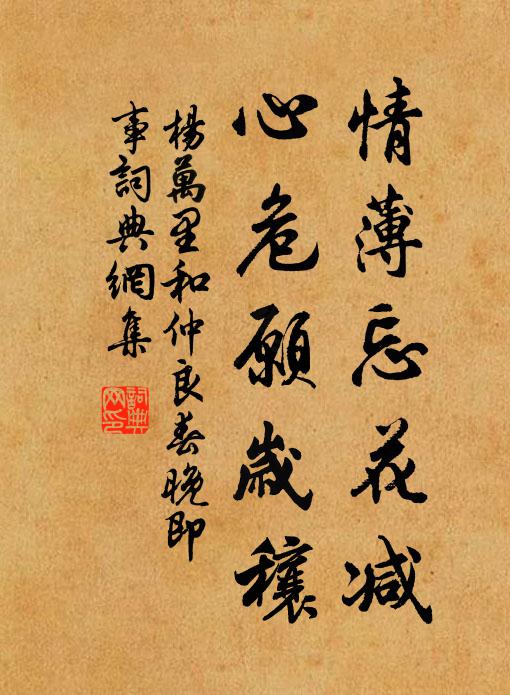 情薄忘花減
心危願歲穰
楊萬里和仲良春晚即
事詞典網集
詞典網印